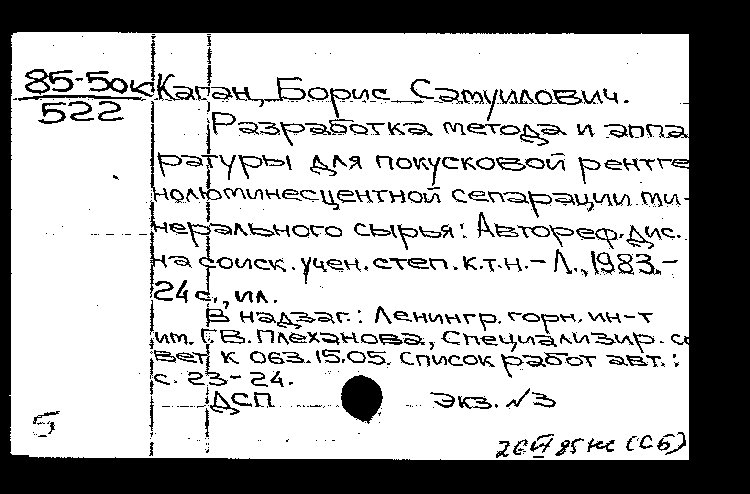 85-50к Каган, Борис Самуилович.
522
Разработка метода и аппа
ратуры для покусковой рентге
нолюминесцентной сепарации ми-
нерального сырья: Автореф. дис.
на соиск. учен. степ. к.т.н. - Л., 1983. -
24 с., ил.
В надзаг.: Ленингр. горн. ин-т
им. Г.В. Плеханова, Специализир. со
вет К 063.15.05. Список работ авт.:
с. 23-24.
ДСП Экз. №3
5
26 VI 85 НС (СБ)